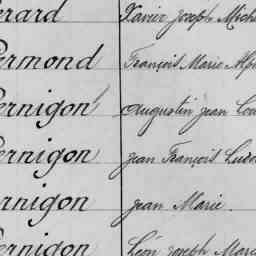 erard Xavier Joseph Mich
ermond François Marie Alph
ernigon Augustin Jean Lou
ernigon Jean François Ludo
ernigon Jean Marie.
ernigon Léon Joseph Marie